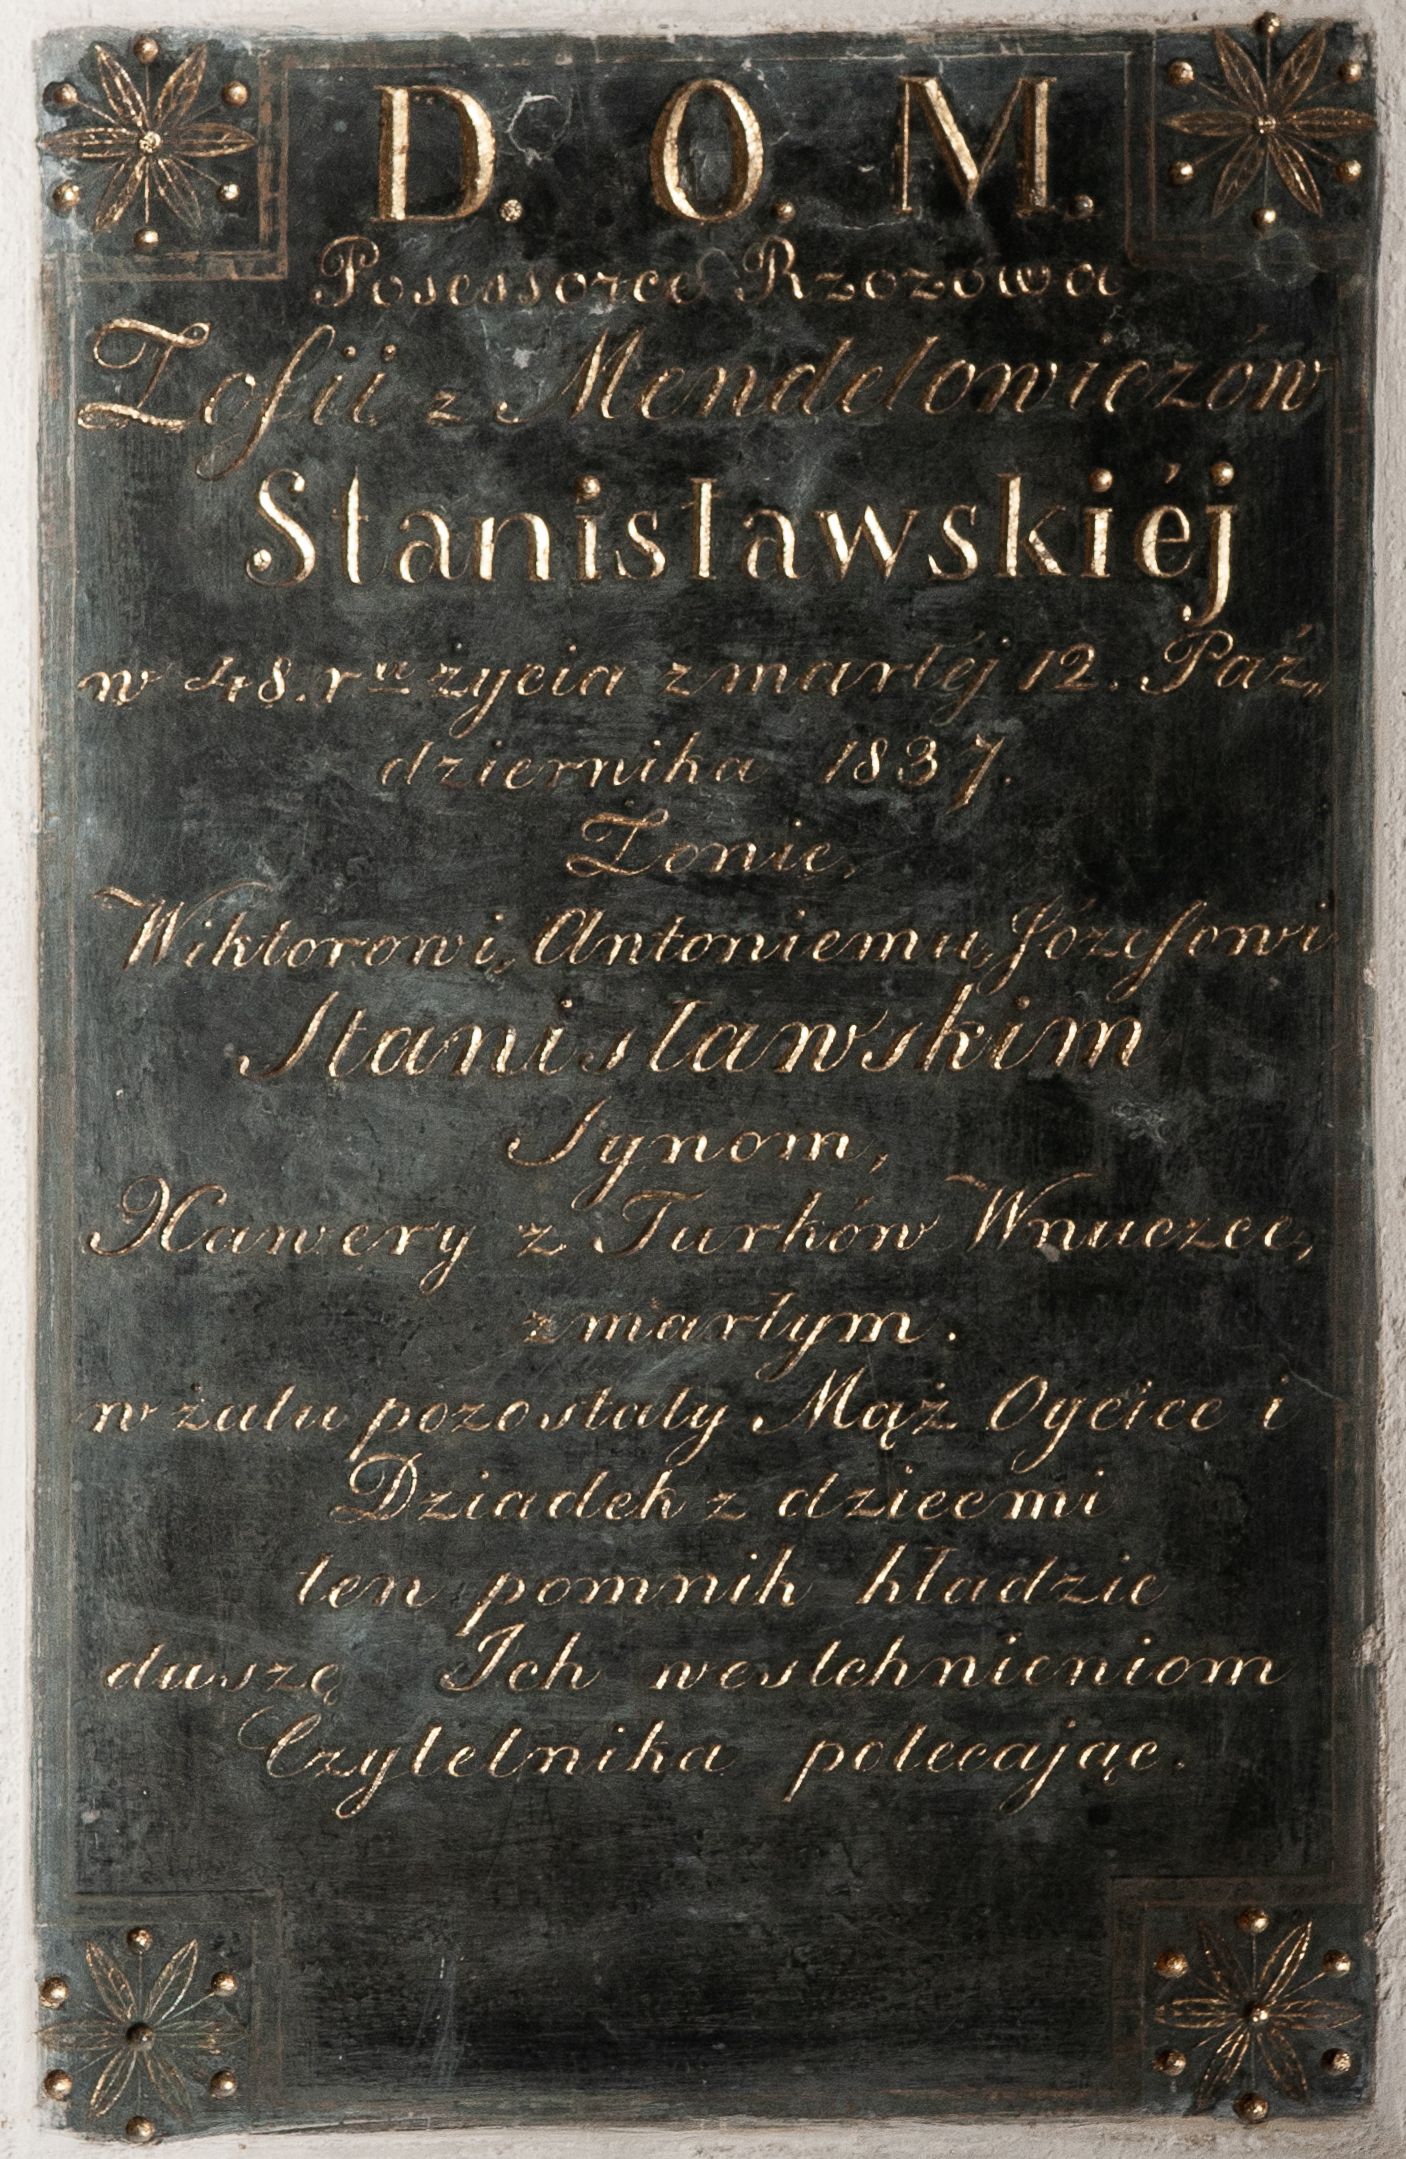 D. O. M.
Posessorce Rzozowa
Zofii z Mendelowiczów
Stanisławskiéj
w 48. ru życia zmarłéj 12. Paź„
dziernika 1837.
Żonie,
Wiktorowi, Antoniemu, Józefowi
Stanisławskim
Synom,
Xawery z Turków Wnuczce,
zmarłym.
w żalu pozostały Mąż Oyciec i
Dziadek z dziecmi
ten pomnik kładzie
duszę Ich westchnieniom
Czytelnika polecając.